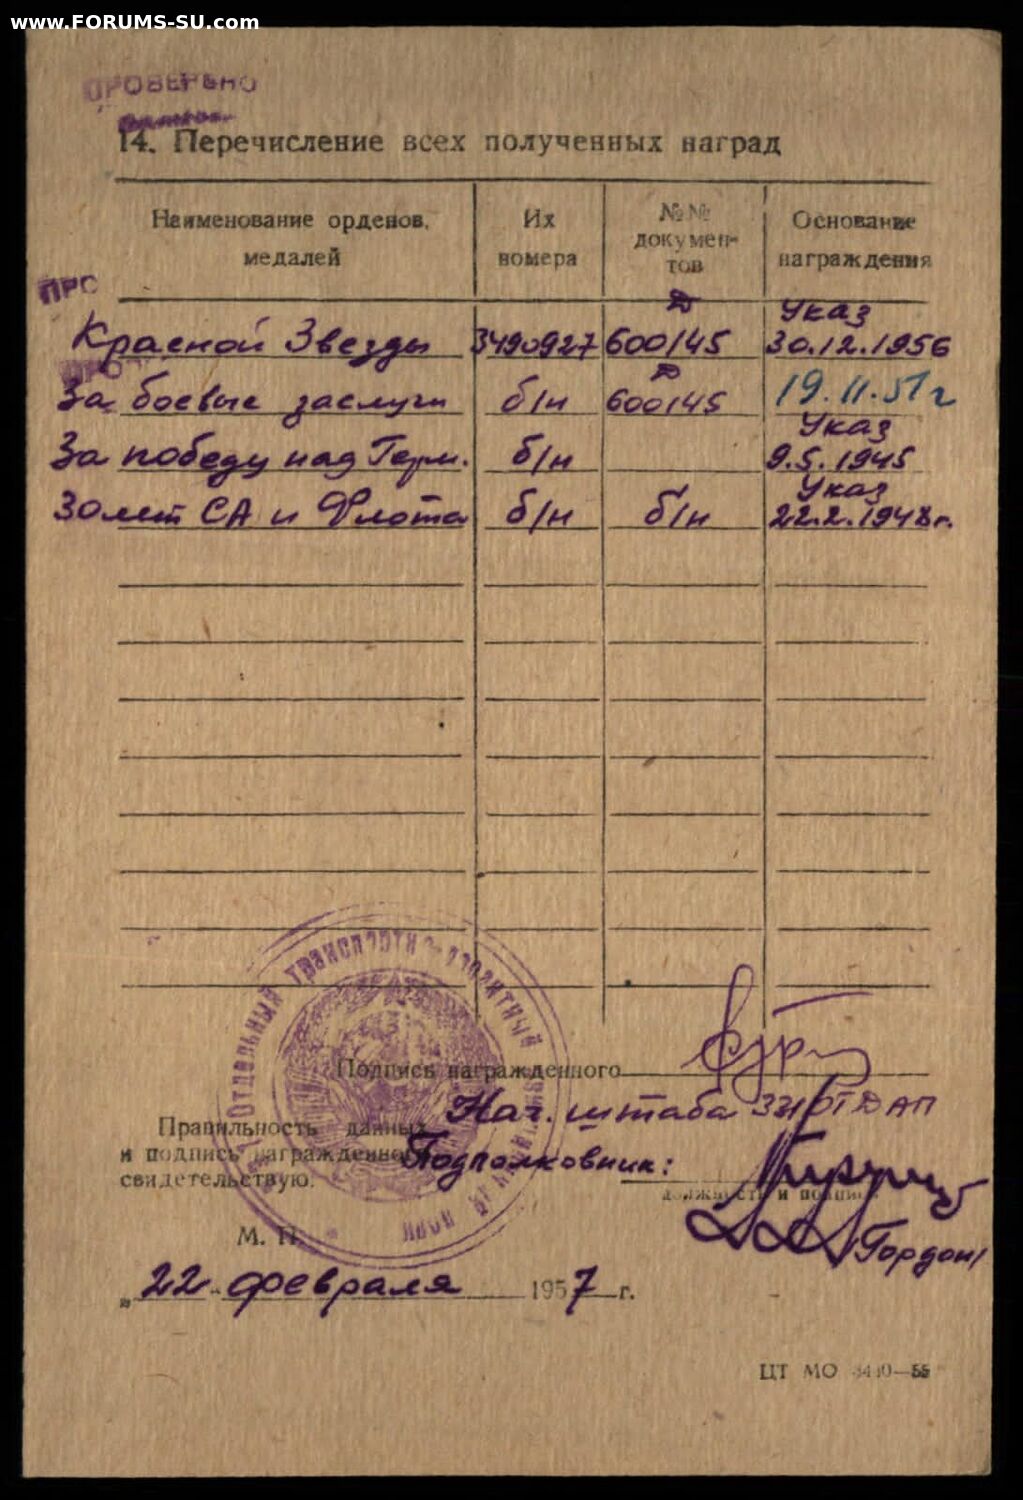 www.FORUMS-SU.com
ПРОВЕРЕНО
14. Перечисление всех полученных наград
Наименование орденов, медалей
Их номера
№№ докумен-тов
Основание награждения
ПРО
Д Указ
Красной Звезды 3490927 600145 30.12.1956
ПРО Д
За боевые заслуги б/н 600145 19.11.51г
Указ
За победу над Герм. б/н 9.5.1945
Указ
30 лет СА и Флота б/н б/н 22.2.1948г.
Отдельный транспортн
Подпись награжденного
Нач. штаба ОТДАП
Правильность данных
и подпись награжденного Подполковник:
свидетельствую. должность и подпись
М. П. /Гордон/
„22" февраля 1957 г.
ЦТ МО